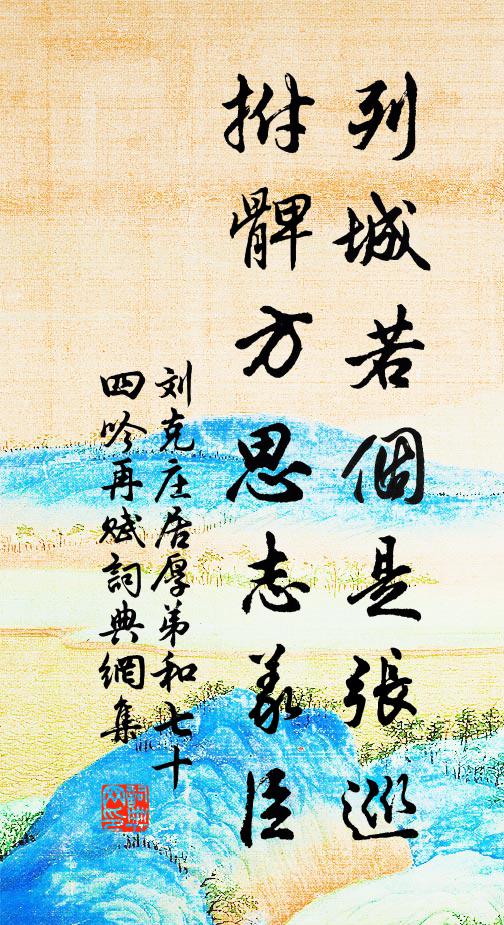 列城若個是張巡
拊髀方思志義臣
刘克庄居厚弟和七十
四吟再赋詞典網集